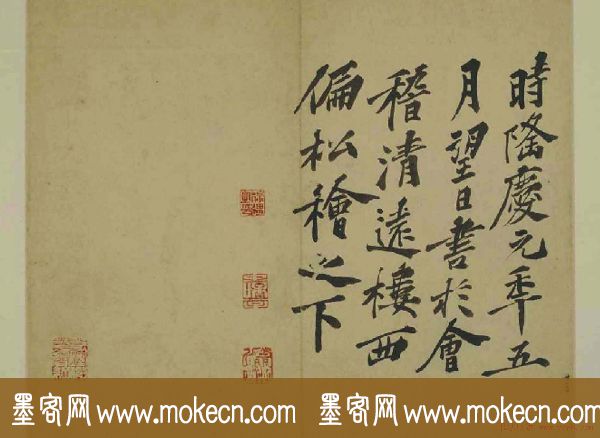 時隆慶元年五
月望日書於會
稽清遠樓西
偏松檜之下
墨客网 www.mokecn.com 墨客网 www.mokecn.com